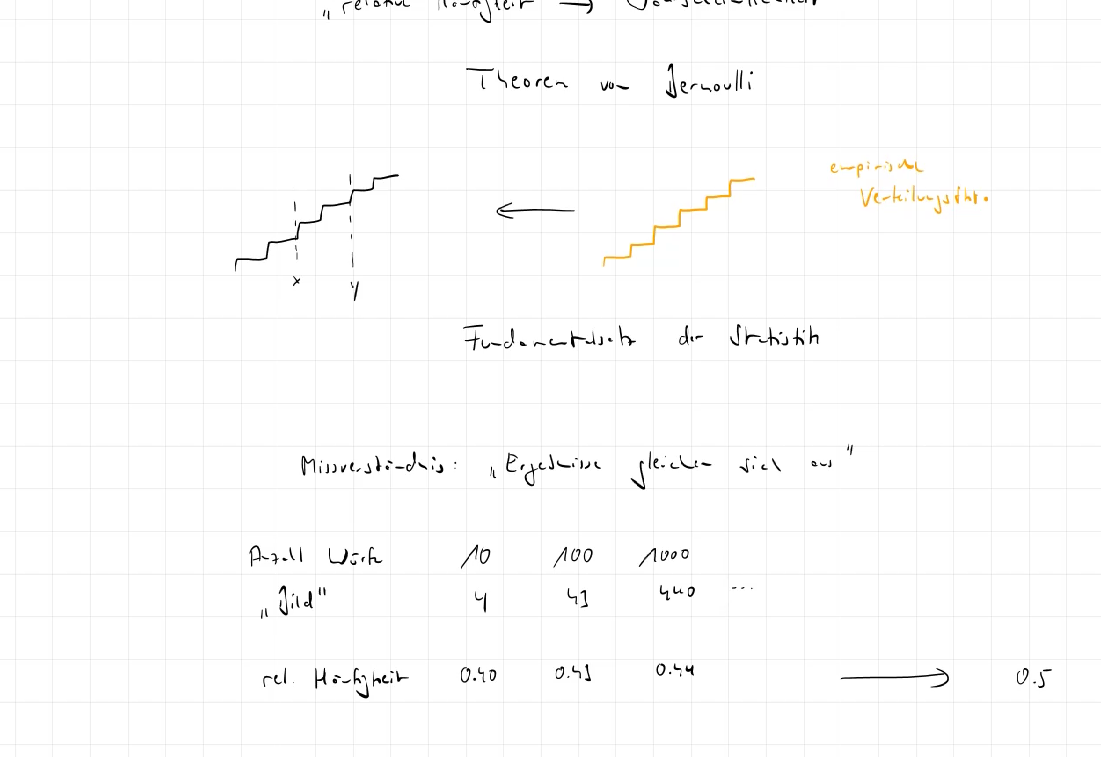 „relative Häufigkeit → Wahrscheinlichkeit
Theorem von Bernoulli
empirische
Verteilungsfkt.
x y
Fundamentalsatz der Statistik
Missverständnis: „Ergebnisse gleichen sich aus"
Anzahl Würfe 10 100 1000
„Bild" 4 43 440 ...
rel. Häufigkeit 0.40 0.43 0.44 → 0.5